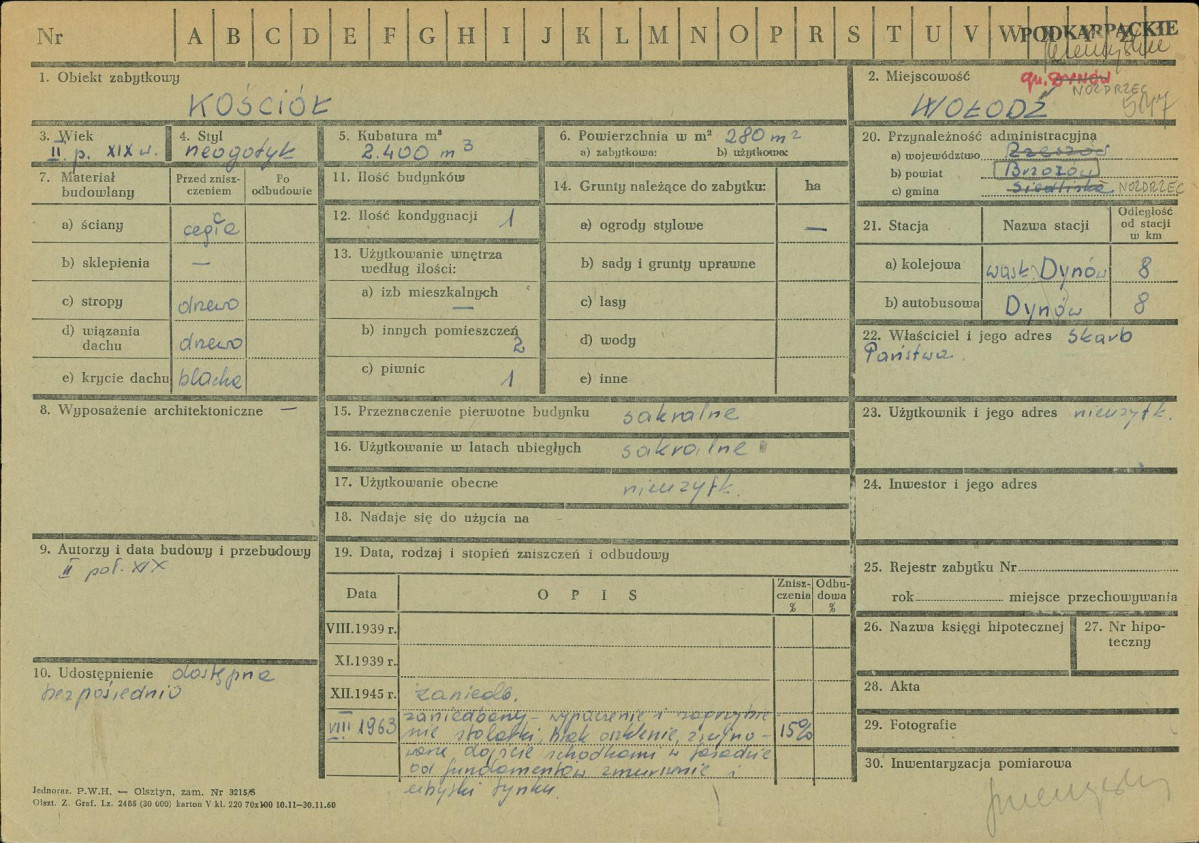 Nr A B C D E F G H I J K L M N O P R S T U V W X Y Z
PODKARPACKIE
1. Obiekt zabytkowy
KOŚCIÓŁ
2. Miejscowość
gm. DYNÓW
NOZDRZEC
WOŁODŹ
3. Wiek
II. p. XIX w.
4. Styl
neogotyk
5. Kubatura m³
2.400 m³
6. Powierzchnia w m² 280 m²
a) zabytkowa: b) użytkowa:
7. Materiał budowlany
Przed zniszczeniem
Po odbudowie
a) ściany cegła
b) sklepienia —
c) stropy drzewo
d) wiązania dachu drzewo
e) krycie dachu blacha
8. Wyposażenie architektoniczne —
9. Autorzy i data budowy i przebudowy
II poł. XIX
10. Udostępnienie dostępne
bezpośrednio
11. Ilość budynków
12. Ilość kondygnacji 1
13. Użytkowanie wnętrza
według ilości:
a) izb mieszkalnych —
b) innych pomieszczeń 2
c) piwnic 1
14. Grunty należące do zabytku: ha
a) ogrody stylowe —
b) sady i grunty uprawne
c) lasy
d) wody
e) inne
15. Przeznaczenie pierwotne budynku sakralne
16. Użytkowanie w latach ubiegłych sakralne
17. Użytkowanie obecne nieużytk.
18. Nadaje się do użycia na
19. Data, rodzaj i stopień zniszczeń i odbudowy
Data OPIS Zniszczenia % Odbudowa %
VIII.1939 r.
XI.1939 r.
XII.1945 r. zaniedb.
VIII 1963 zaniedbany - wypaczenie i zagrzybie- 15%
nie stolarki, brak oszklenia, zrujno-
wane dojście schodkami w fasadzie
od fundamentów zmurszenie i
ubytki tynku.
20. Przynależność administracyjna
a) województwo Rzeszów
b) powiat Brzozów
c) gmina Siedliska NOZDRZEC
21. Stacja Nazwa stacji Odległość od stacji w km
a) kolejowa wąsk. Dynów 8
b) autobusowa Dynów 8
22. Właściciel i jego adres Skarb
Państwa.
23. Użytkownik i jego adres nieużytk.
24. Inwestor i jego adres
25. Rejestr zabytku Nr
rok miejsce przechowywania
26. Nazwa księgi hipotecznej
27. Nr hipo-
teczny
28. Akta
29. Fotografie
30. Inwentaryzacja pomiarowa
Jednoraz. P.W.H. — Olsztyn, zam. Nr 3215/S
Olszt. Z. Graf. Lz. 2485 (30 000) karton V kl. 220 70x100 10.11—30.11.60